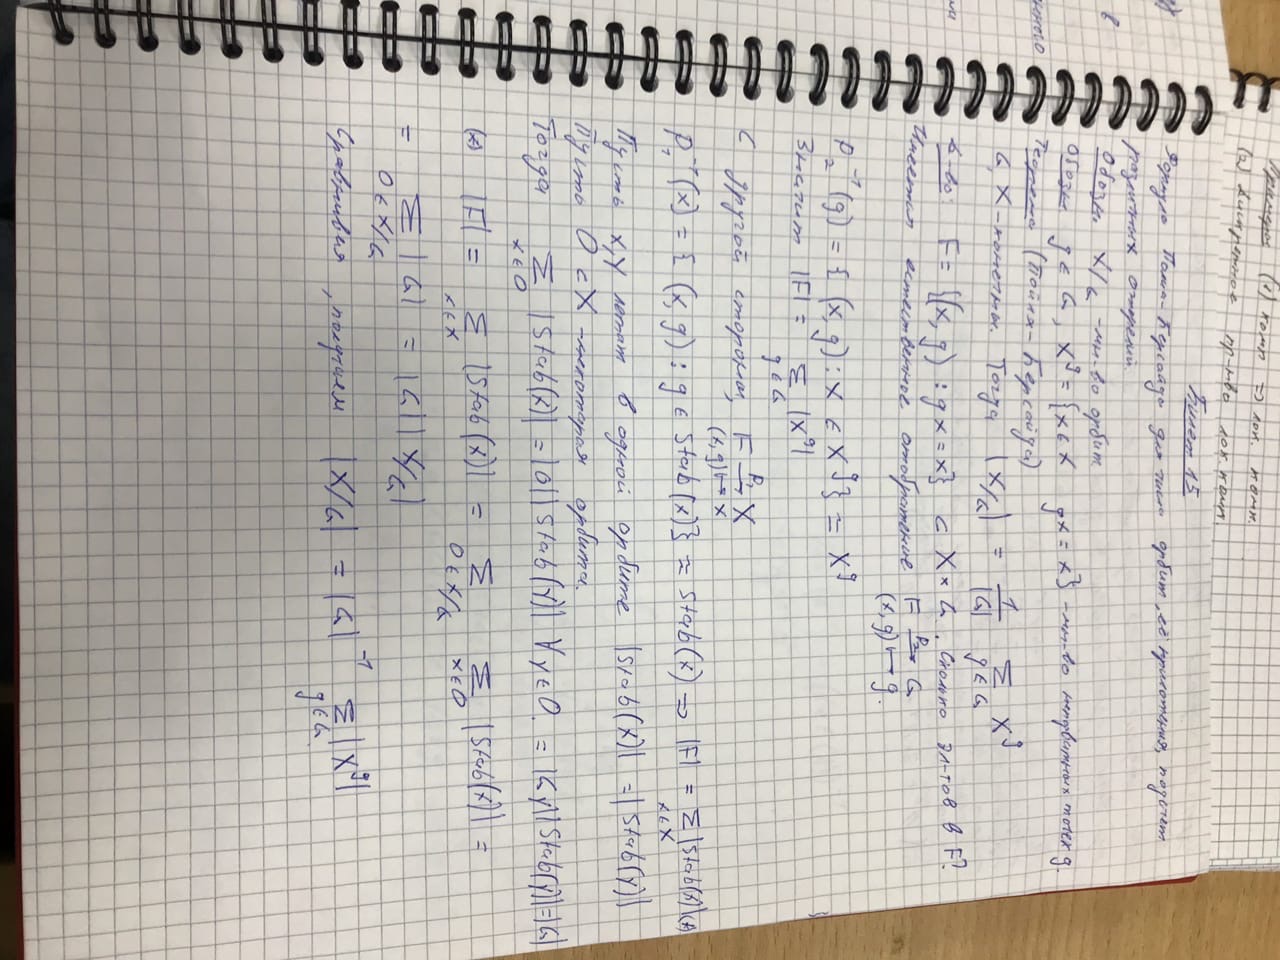 Примеры (1) комп ⇒ лок. комп.
(2) Дискретное пр-тво лок. комп.
Билет 15
Формула Поиа-Бернсайда для числа орбит, её приложения, подсчет
различных ожерелий.
Обозн. X/G - мн-во орбит
Обозн g ∈ G, X^g = {x ∈ X gx = x} - мн-во неподвижных точек g.
Теорема (Пойя-Бернсайда)
G, X - конечны. Тогда |X/G| = 1/|G| Σ_{g∈G} X^g
Д-во: F = {(x, g) : gx = x} ⊂ X × G. Сколько эл-тов в F?
Имеется естественное отображение F →^{P₂} G
(x, g) ↦ g.
P₂⁻¹(g) = { (x, g) : x ∈ X^g} ≈ X^g
Значит |F| = Σ_{g∈G} |X^g|
С другой стороны, F →^{P₁} X
(x, g) ↦ x
P₁⁻¹(x) = { (x, g) : g ∈ Stab(x)} ≈ Stab(x) ⇒ |F| = Σ_{x∈X} |Stab(x)| (*)
Пусть x, y лежат в одной орбите |Stab(x)| = |Stab(y)|
Пусть O ⊂ X - некоторая орбита.
Тогда Σ_{x∈O} |Stab(x)| = |O||Stab(y)| ∀ y ∈ O. = |Gy||Stab(y)| = |G|
(*) |F| = Σ_{x∈X} |Stab(x)| = Σ_{O∈X/G} Σ_{x∈O} |Stab(x)| =
= Σ_{O∈X/G} |G| = |G| |X/G|
Сравнивая, получаем |X/G| = |G|⁻¹ Σ_{g∈G} |X^g|
в
нного